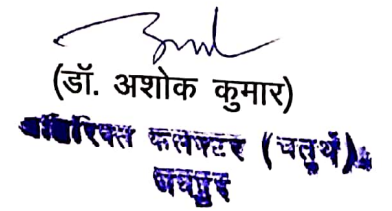 (डॉ. अशोक कुमार)
अतिरिक्त कलेक्टर (चतुर्थ)
जयपुर